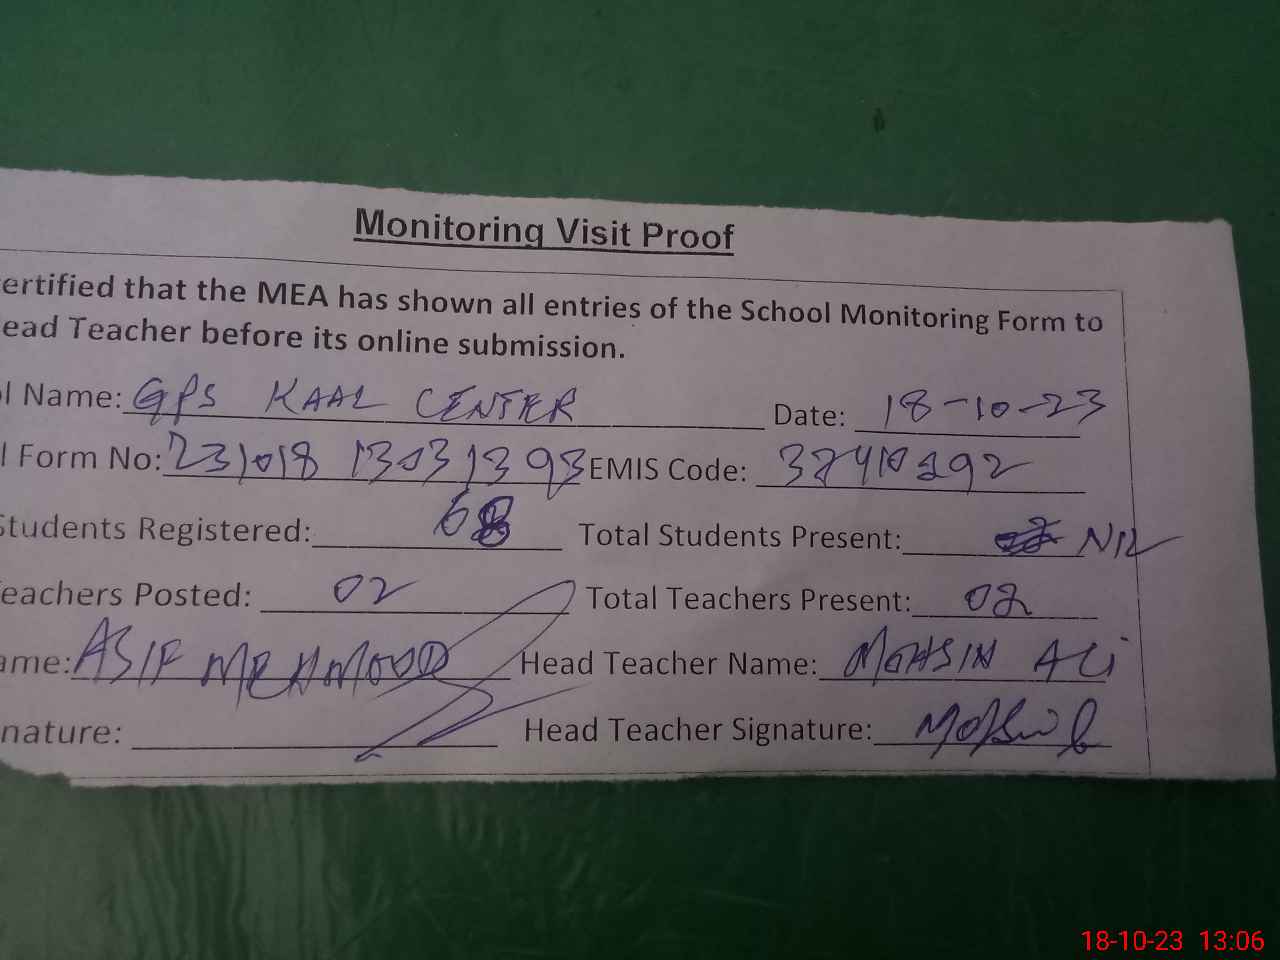 Monitoring Visit Proof
ertified that the MEA has shown all entries of the School Monitoring Form to
ead Teacher before its online submission.
l Name: GPS KAAL CENTER Date: 18-10-23
l Form No: 231018 13031393 EMIS Code:
Students Registered: 68 Total Students Present: NIL
eachers Posted: 02 Total Teachers Present: 02
ame: ASIF MEHMOOD Head Teacher Name: MOHSIN ALi
nature: Head Teacher Signature:
18-10-23 13:06